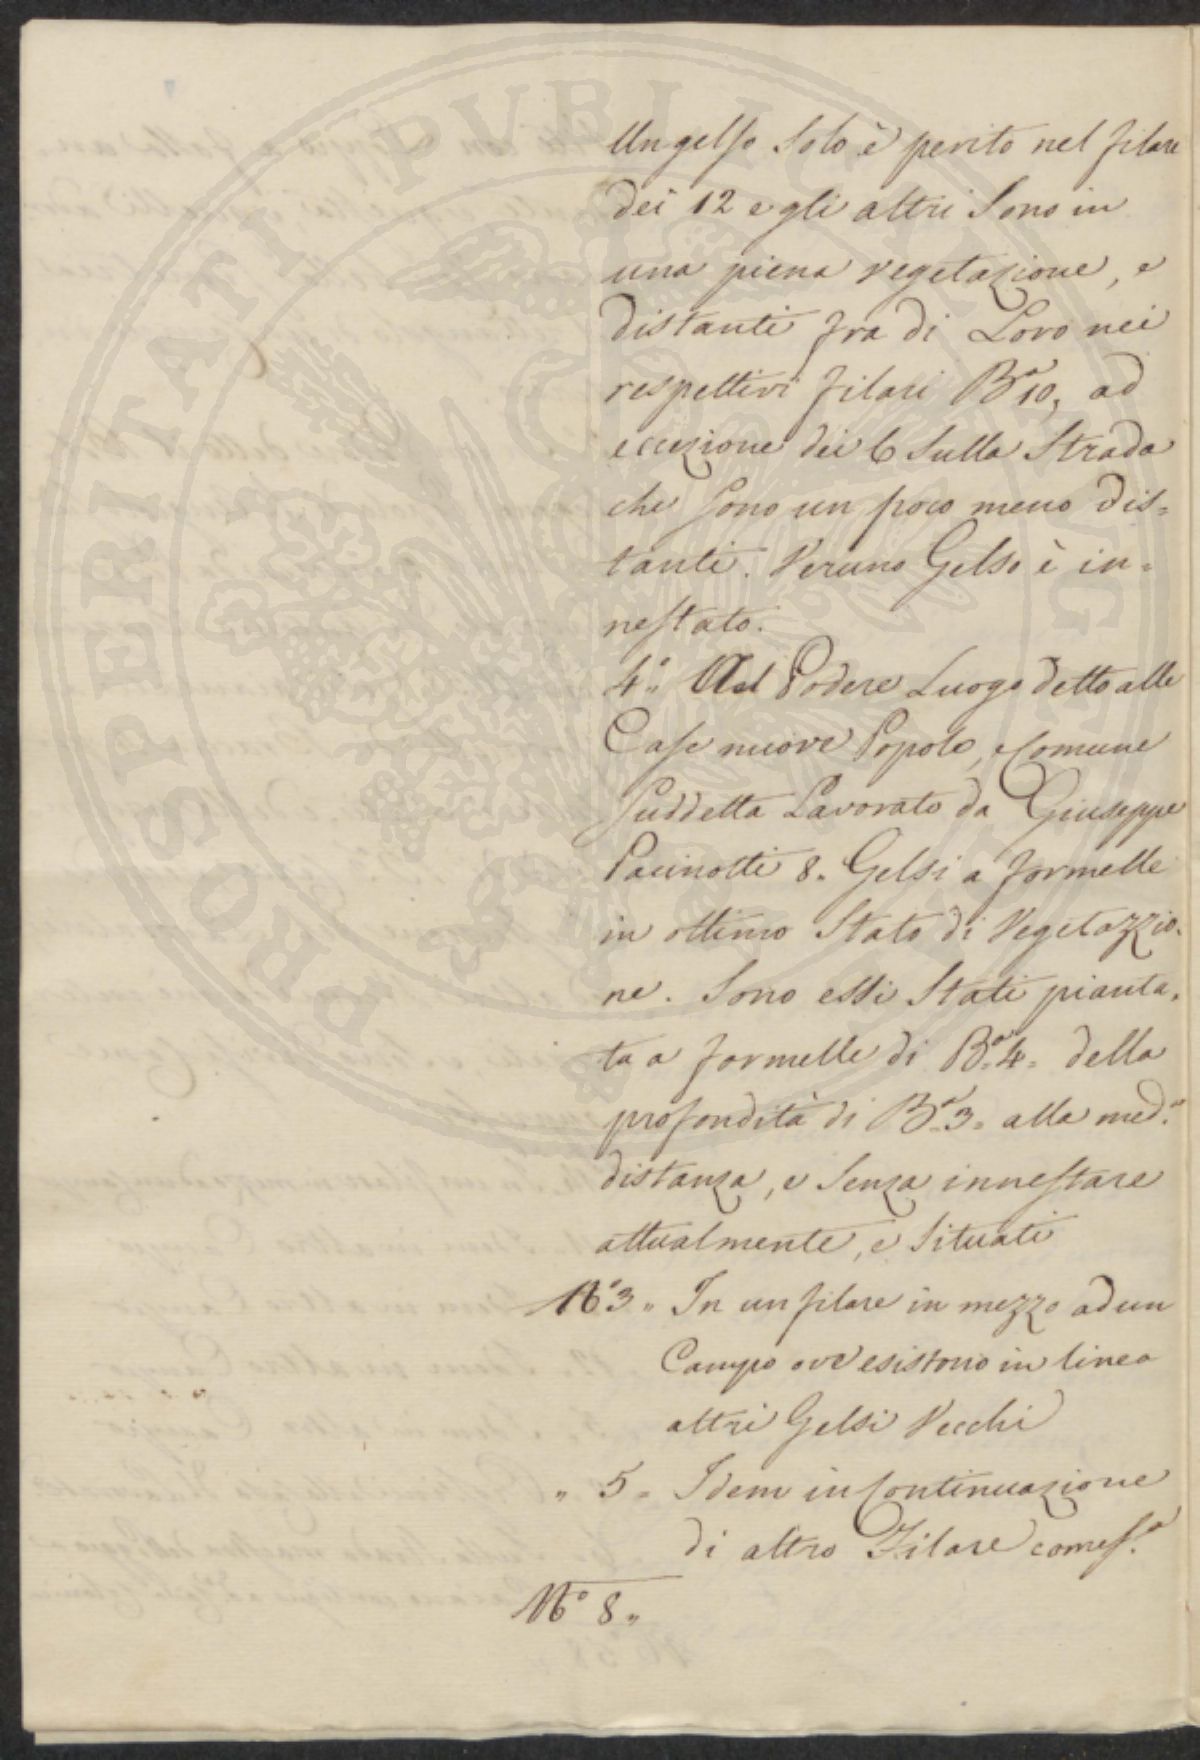 Un gelso solo è perito nel filare
dei 12 e gli altri Sono in
una piena vegetazione, e
distanti fra di Loro nei
respettivi filari B.a 10, ad
eccezione dei 6 Sulla Strada
che Sono un poco meno dis=
tanti. Veruno Gelso è in=
nestato.
4.° Al Podere Luogo detto alle
Case nuove Popolo, e Comune
Suddetta Lavorato da Giuseppe
Pacinotti 8. Gelsi a formelle
in ottimo Stato di Vegetazzio=
ne. Sono essi Stati pianta=
ta a formelle di B.a 4= della
profondità di B.a 3= alla med.a
distanza, e Senza innestare
attualmente, e Situati
N.° 3 " In un filare in mezzo ad un
Campo ove esistono in linea
altri Gelsi Vecchi
" 5 = Idem in Continuazione
di altro Filare come S.a
N.° 8 "
PROSPERITATI PVBLICAE